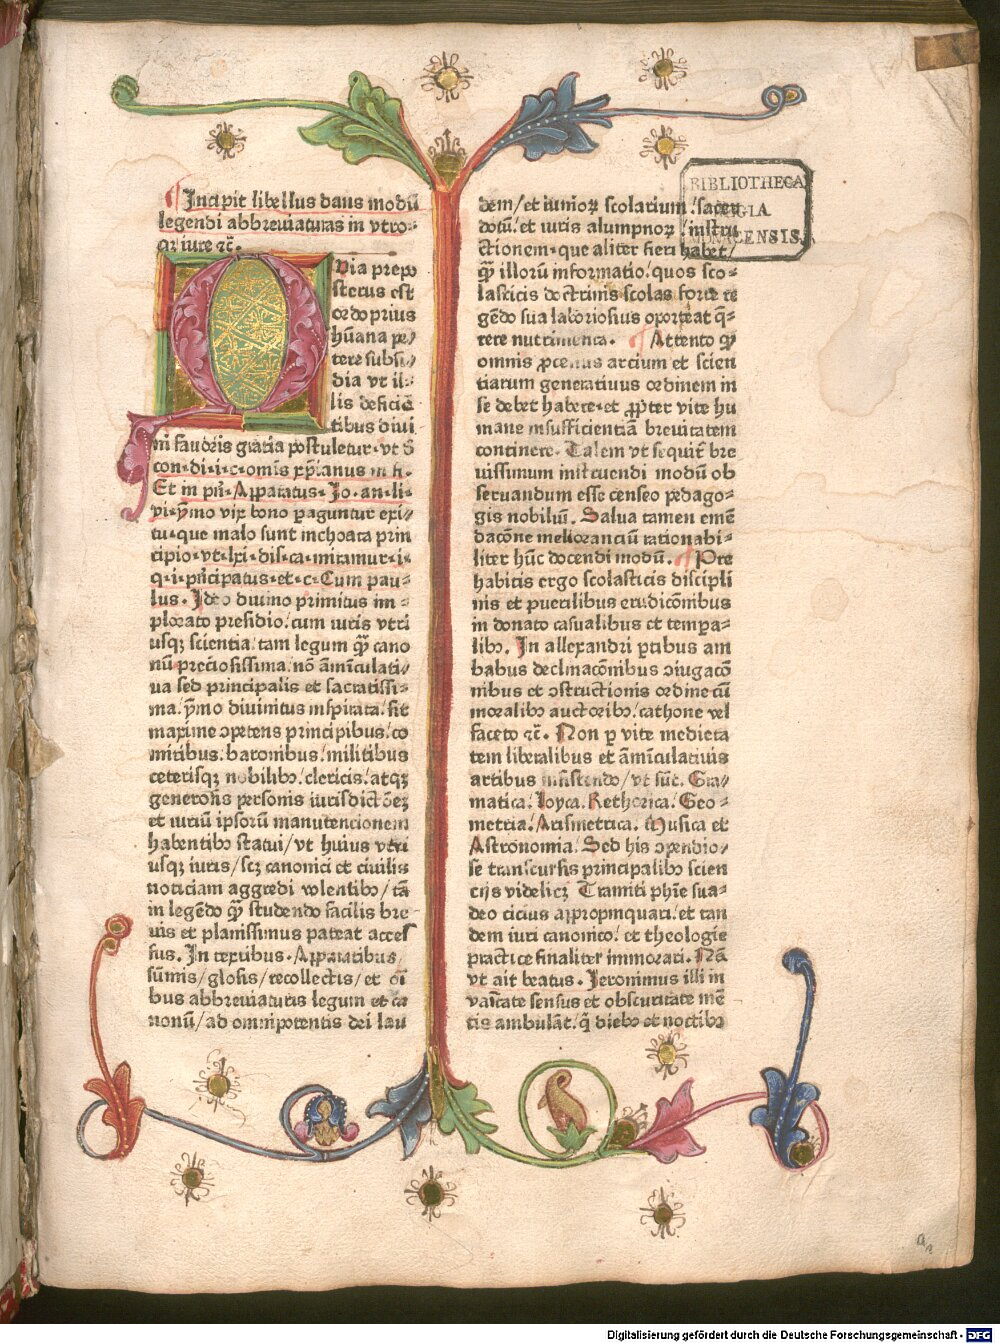 Incipit libellus dans modū
legendi abbreuiaturas in vtro-
qꝫ iure ⁊c̄.
Via prepo
sterus est
ordo prius
hūana pe/
tere subsi/
dia vt il-
lis deficiē
tibus diui
ni fauoris gratia postuletur. vt
con. di. i. c. omīs xp̄ianus
Et in pn̄. Apparatus. Io. an. li.
vi. ymo vix bono paguntur exi/
tu. que malo sunt inchoata prin
cipio. vt. lxi. dis. ca. miramur. i.
q. i. prīcipatus. et. c. Cum pau-
lus. Ideo diuino primitus im-
plorato presidio. cum iuris vtri
usqꝫ scientia. tam legum qᷓꝫ cano
nū preciosissima. nō āmīculati/
ua sed principalis et sacratissi-
ma. ymo diuinitus inspirata. sit
maxime ꝯpetens principibus. co
mitibus. baronibus. militibus
ceterisqꝫ nobilibꝫ. clericis. atqꝫ
generosis personis iurisdictōeꝫ
et iuriū ipsorū manutencionem
habentibꝫ statui/ vt huius vtri
usqꝫ iuris/ scꝫ canonici et ciuilis
noticiam aggredi volentibꝫ/ tā
in legēdo qᷓꝫ studendo facilis bre
uis et planissimus pateat acces
sus. In textibus. Apparatibus/
sūmis/ glosis/ recollectis/ et oī
bus abbreuiaturis legum et ca
nonū/ ad omnipotentis dei lau
dem/ et iunioꝝ scolarium. sacer
dotū. et iuris alumpnoꝝ. instru
ctionem. que aliter fieri habet/
qᷓꝫ illorū informatio. quos sco-
lasticis doctrinis scolas forte re
gēdo sua laboriosius oporteat q̄-
rere nutrimenta. Attento qꝫ
omnis ꝓcessus arcium et scien
tiarum generatiuus ordinem in
se debet habere. et ꝓpter vite hu
mane insufficientiā breuitatem
continere. Talem vt sequit᷑ bre
uissimum instruendi modū ob
seruandum esse censeo pedago-
gis nobiliū. Salua tamen emē
dacōne meliorancium rationabi-
liter hūc docendi modū. Pre
habitis ergo scolasticis discipli
nis et puerilibus erudicōnibus
in donato casualibus et tempa-
libꝫ. In allexandri ꝑtibus am
babus declinacōnibus ꝯiugacō
nibus et ꝯstructionis ordine cū
moralibꝫ auctoribꝫ. cathone vel
faceto ⁊c̄. Non ꝑ vite medieta
tem liberalibus et āmīculatiuis
artibus insistendo/ vt sūt. Gra/
matica. Loyca. Rethorica. Geo-
metria. Arismetrica. Musica et
Astronomia. Sed his ꝯpendio/
se transcursis principalibꝫ scien
cijs videlicꝫ Tramiti phīe sua-
deo cicius appropinquari. et tan
dem iuri canonico. et theologie
practice finaliter immorari. Nā
vt ait beatus. Jeronimus illi in
vanitate sensus et obscuritate mē
tis ambulāt. q̄ diebꝫ et noctibꝫ
BIBLIOTHECA
REGIA
MONACENSIS.
Digitalisierung gefördert durch die Deutsche Forschungsgemeinschaft - DFG